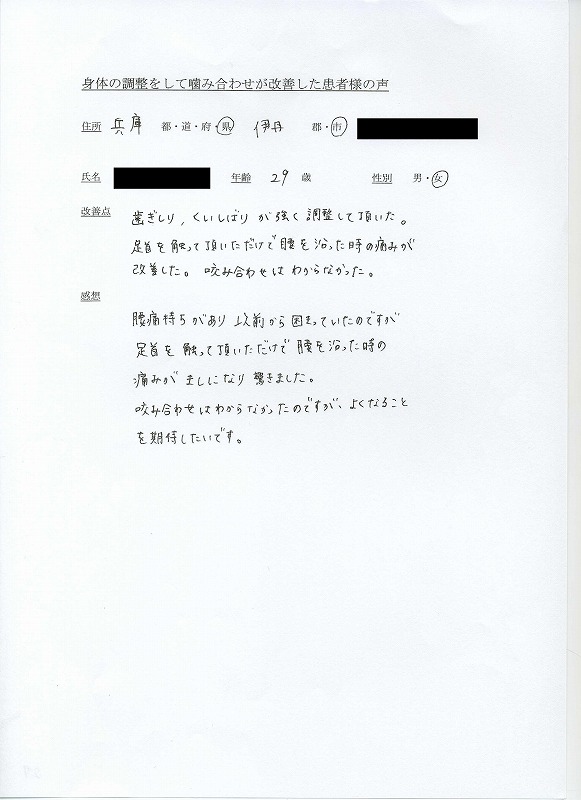 身体の調整をして噛み合わせが改善した患者様の声
住所 兵庫 都・道・府・県 伊丹 郡・市
氏名 年齢 29 歳 性別 男・女
改善点 歯ぎしり、くいしばりが強く調整して頂いた。
足首を触って頂いただけで腰を沿った時の痛みが
改善した。咬み合わせはわからなかった。
感想
腰痛持ちがあり以前から困まっていたのですが
足首を触って頂いただけで腰を沿った時の
痛みがましになり驚きました。
咬み合わせはわからなかったのですが、よくなること
を期待したいです。